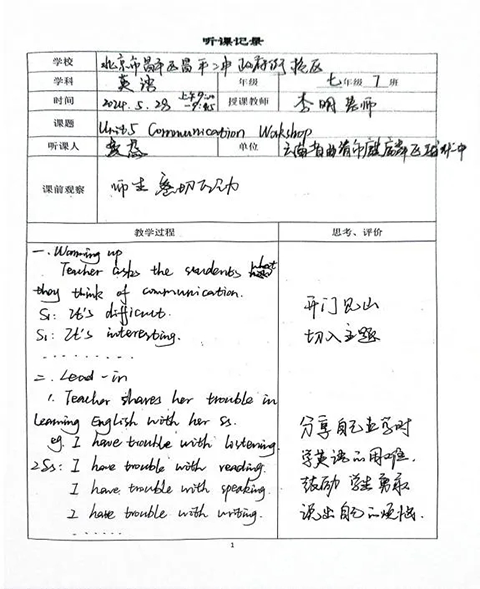 听课记录
学校 北京市昌平区昌平二中政府街校区
学科 英语 年级 七年级 7 班
时间 2024.5.28 上午9:00 -9:45 授课教师 李明老师
课题 Unit5 Communication Workshop
听课人 单位 云南省曲靖市麒麟区
课前观察 师生亲切互动
教学过程 思考、评价
一. Warming up
Teacher asks the students what
they think of communication.
S1: It's difficult.
S1: It's interesting.
........
开门见山
切入主题
二. Lead-in
1. Teacher shares her trouble in
learning English with her Ss.
eg. I have trouble with listening.
2 Ss: I have trouble with reading.
I have trouble with speaking.
I have trouble with writing.
......
分享自己在学时
学英语的困难.
鼓励学生勇敢
说出自己的烦恼.
1